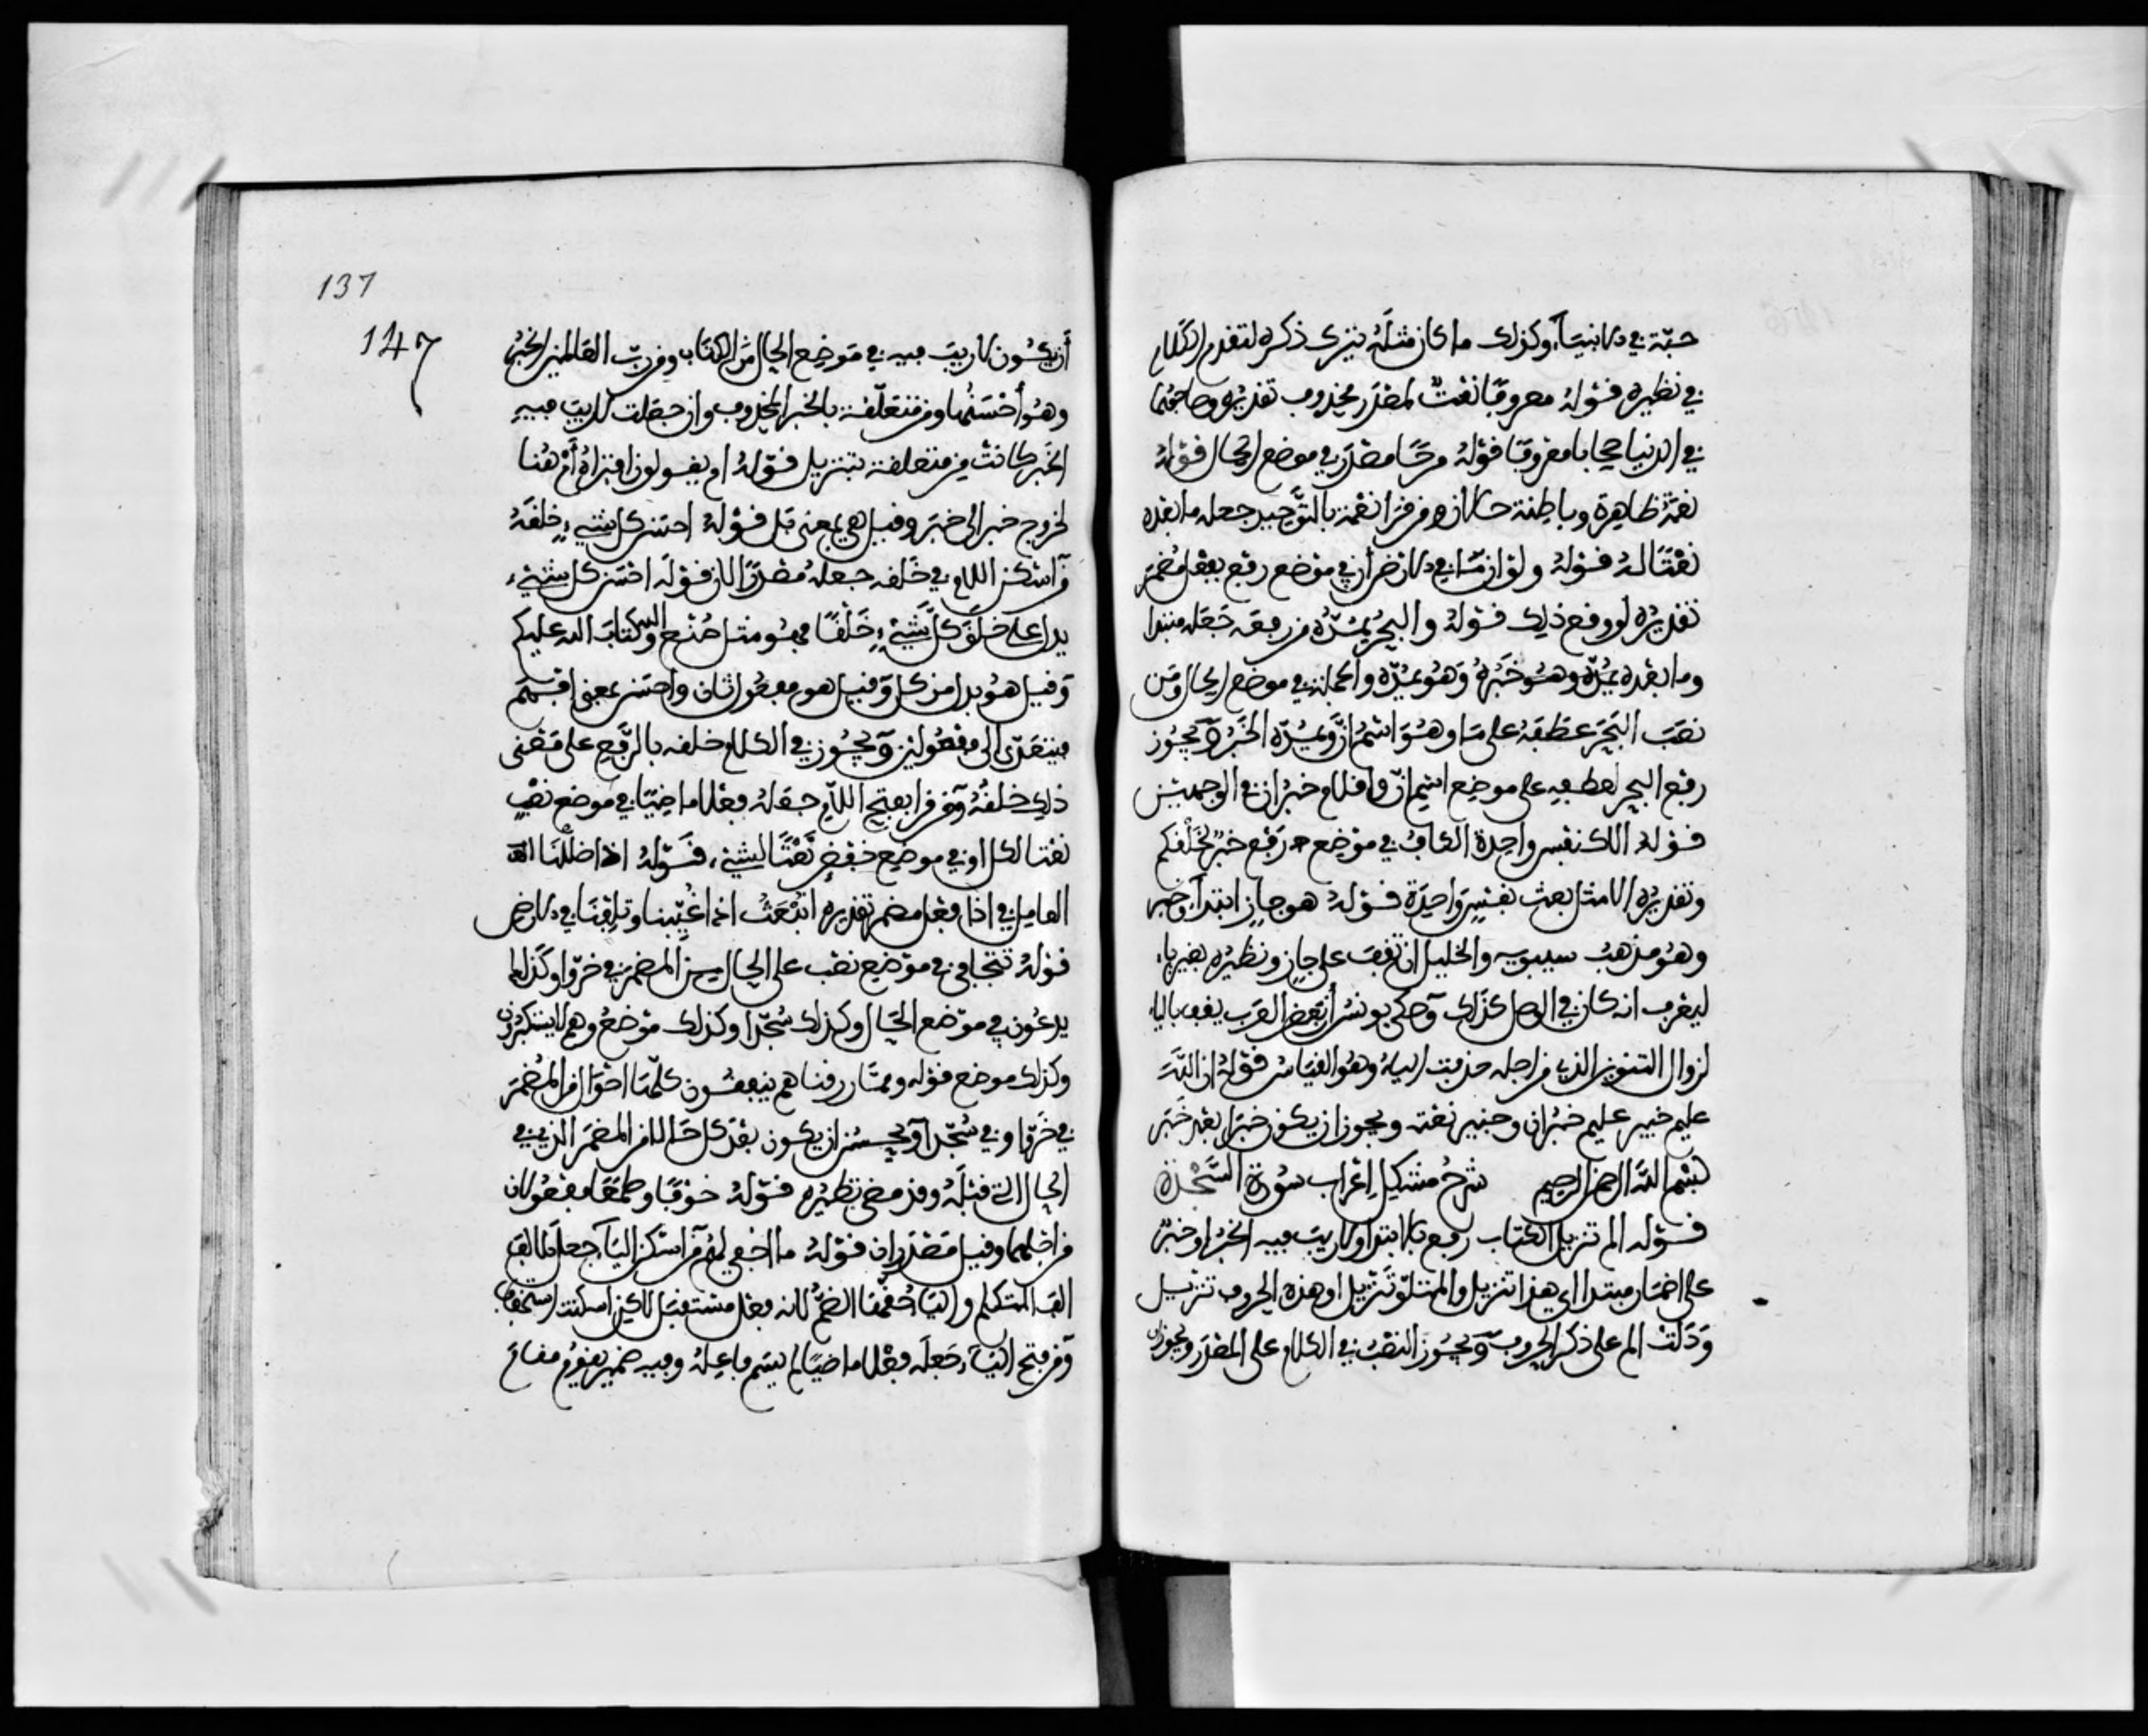 حبّة في الانبياء وكذلك ما كان مثله نترك ذكره لتقدم الكلام
في نظيره قوله معروفا نعت لمصدر محذوف تقديره وصاحبهما
في الدنيا صحابا معروفا قوله مرحا مصدر في موضع الحال قوله
نعمه ظاهرة وباطنة حالان ومن قرا نعمة بالتوحيد جعله ما بعده
نعتا له قوله ولو ان ما في الارض أن في موضع رفع بفعل مضمر
تقديره لو وقع ذلك قوله والبحر يمده من رفعه جعله مبتدا
وما بعده يمده وهو خبره وهو يمده والجملة في موضع الحال ومن
نصب البحر عطفه على ما وهو اسم ان ويمده الخبر ويجوز
رفع البحر لعطفه على موضع اسم ان واقلام خبر ان في الوجهين
قوله الا كنفس واحدة الكاف في موضع رفع خبر لخلقكم
وتقديره الا مثل بعث نفس واحدة قوله هو جاز ابتداء وخبر
وهو مذهب سيبويه والخليل ان تقف على جاز ونظيره بغير ياء
ليعرف انه كان في الوصل كذلك وحكى يونس أن بعض العرب يقف بالياء
لزوال التنوين الذي من اجله حذفت الياء وهو القياس قوله ان الله
عليم خبير عليم خبر ان وخبير نعته ويجوز ان يكون خبرا بعد خبر
بسم الله الرحمن الرحيم شرح مشكل اعراب سورة السجدة
قوله الم تنزيل الكتاب رفع بالابتدا ولا ريب فيه الخبر او خبر
على اضمار مبتدا اي هذا تنزيل والمتلو تنزيل او هذه الحروف تنزيل
ودلت الم على ذكر الحروف ويجوز النصب في الكلام على المصدر ويجوز
137
147
أن يكون لا ريب فيه في موضع الحال من الكتاب ومن رب العالمين الخبر
وهو أحسنها ومن متعلقة بالخبر المحذوف وان جعلت لا ريب فيه
الخبر كانت من متعلقة بتنزيل قوله ام يقولون افتراه أم هنا
لخروج خبر الى خبر وقيل هي بمعنى بل قوله احسن كل شيء خلقه
من اسكن اللام في خلقه جعله مصدرا لان قوله احسن كل شيء
يدل على خلق كل شيء خلقا فهو مثل صنع الله وكتاب الله عليكم
وقيل هو بدل من كل وقيل هو مفعول ثان واحسن بمعنى افهم
فيتعدى الى مفعولين ويجوز في الكلام خلقه بالرفع على معنى
ذلك خلقه ومن قرا بفتح اللام جعله فعلا ماضيا في موضع نصب
نعتا لكل او في موضع خفض نعتا لشيء قوله اذا ضللنا
العامل في اذا فعل مضمر تقديره انبعث اذا غيبنا وتلفنا في الارض
قوله تتجافى في موضع نصب على الحال من المضمر في خروا وكذلك
يدعون في موضع الحال وكذلك سجدا وكذلك موضع وهم لا يستكبرون
وكذلك موضع قوله ومما رزقناهم ينفقون كلها احوال من المضمر
في خروا وفي سجدا ويحسن ان يكون بعد كل حال من المضمر الذي في
الحال التي قبله وقد مضى نظيره قوله خوفا وطمعا مفعولان
من اجلهما وقيل مصدران قوله ما اخفي لهم من اسكن الياء جعل الالف
الف المتكلم والياء حقها الضم لانه فعل مستقبل لكن اسكنت استخفافا
ومن فتح الياء جعله فعلا ماضيا لم يسم فاعله وفيه ضمير يقوم مقام